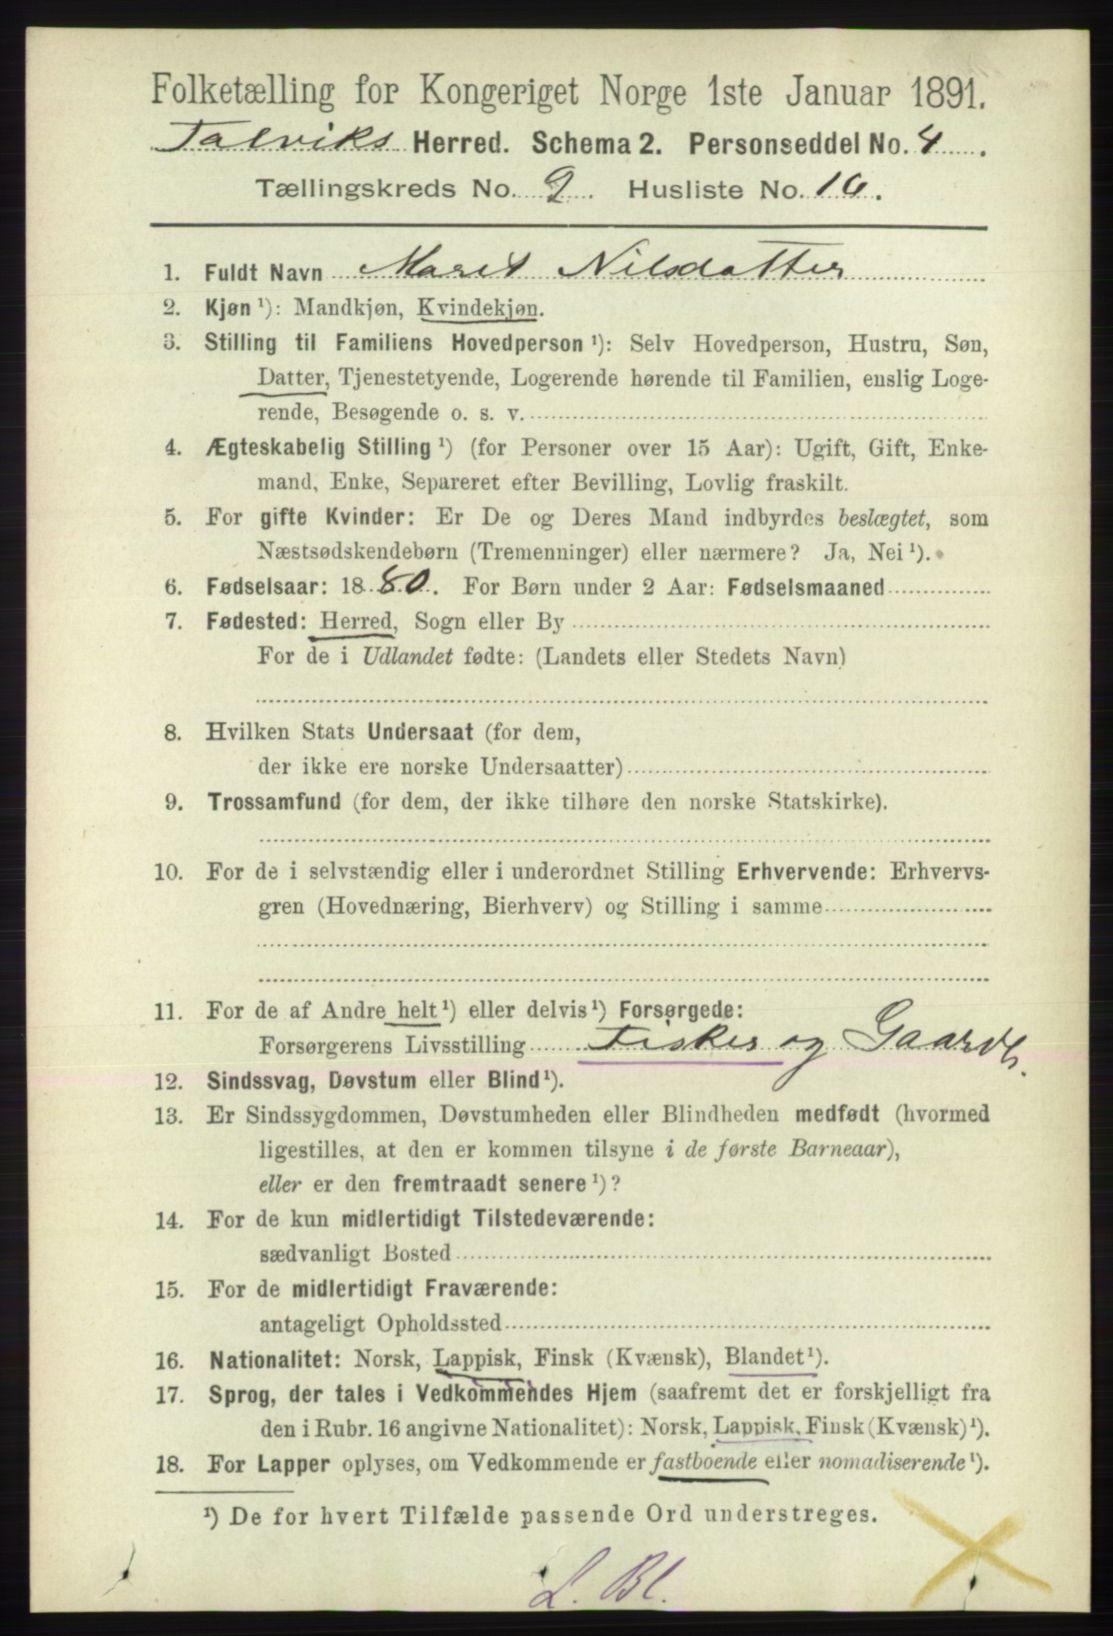 Folketælling for Kongeriget Norge 1ste Januar 1891.
Talviks Herred. Schema 2. Personseddel No. 4.
Tællingskreds No. 9. Husliste No. 16.
1. Fuldt Navn Marit Nilsdatter
2. Kjøn ¹): Mandkjøn, Kvindekjøn.
3. Stilling til Familiens Hovedperson ¹): Selv Hovedperson, Hustru, Søn,
Datter, Tjenestetyende, Logerende hørende til Familien, enslig Loge-
rende, Besøgende o. s. v.
4. Ægteskabelig Stilling ¹) (for Personer over 15 Aar): Ugift, Gift, Enke-
mand, Enke, Separeret efter Bevilling, Lovlig fraskilt.
5. For gifte Kvinder: Er De og Deres Mand indbyrdes beslægtet, som
Næstsødskendebørn (Tremenninger) eller nærmere? Ja, Nei ¹).
6. Fødselsaar: 1880. For Børn under 2 Aar: Fødselsmaaned
7. Fødested: Herred, Sogn eller By
For de i Udlandet fødte: (Landets eller Stedets Navn)
8. Hvilken Stats Undersaat (for dem,
der ikke ere norske Undersaatter)
9. Trossamfund (for dem, der ikke tilhøre den norske Statskirke).
10. For de i selvstændig eller i underordnet Stilling Erhvervende: Erhvervs-
gren (Hovednæring, Bierhverv) og Stilling i samme
11. For de af Andre helt ¹) eller delvis ¹) Forsørgede:
Forsørgerens Livsstilling Fisker og Gaardb.
12. Sindssvag, Døvstum eller Blind ¹).
13. Er Sindssygdommen, Døvstumheden eller Blindheden medfødt (hvormed
ligestilles, at den er kommen tilsyne i de første Barneaar),
eller er den fremtraadt senere ¹)?
14. For de kun midlertidigt Tilstedeværende:
sædvanligt Bosted
15. For de midlertidigt Fraværende:
antageligt Opholdssted
16. Nationalitet: Norsk, Lappisk, Finsk (Kvænsk), Blandet ¹).
17. Sprog, der tales i Vedkommendes Hjem (saafremt det er forskjelligt fra
den i Rubr. 16 angivne Nationalitet): Norsk, Lappisk, Finsk (Kvænsk) ¹).
18. For Lapper oplyses, om Vedkommende er fastboende eller nomadiserende ¹).
¹) De for hvert Tilfælde passende Ord understreges.
L. Bl.